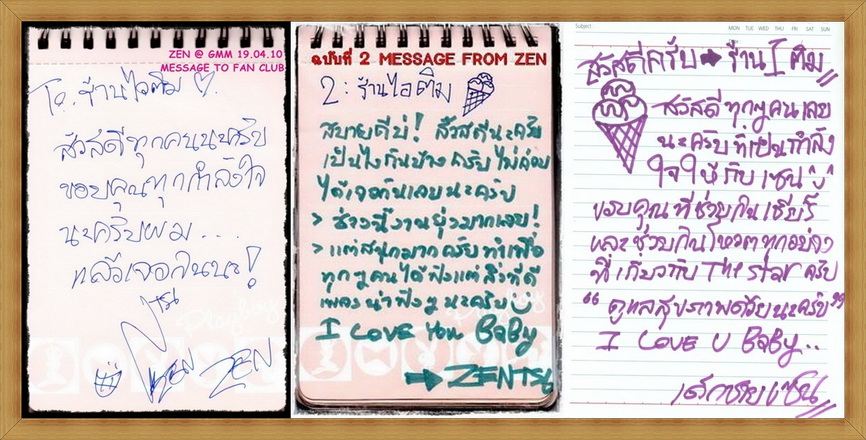 ZEN @ GMM 19.04.10
MESSAGE TO FAN CLUB
To. ร้านไอติม ♡.
สวัสดีทุกคนนะครับ
ขอบคุณทุกกำลังใจ
นะครับผม....
แล้วเจอกันนะ!
เซน
ZEN ZEN
ฉบับที่ 2 MESSAGE FROM ZEN
2: ร้านไอติม
สบายดีบ่! สวัสดีนะครับ
เป็นไงกันบ้างครับ ไม่ค่อย
ได้เจอกันเลยนะครับ
> ช่วงนี้งานยุ่งมากเลย!
> แต่สนุกมากครับ ทำเพื่อ
ทุกๆคนได้ฟังแต่สิ่งที่ดี
เพลงน่าฟังๆ นะครับ
I LOVE YOU BaBy
➡ ZENTSL
Subject:
MON TUE WED THU FRI SAT SUN
สวัสดีครับ ➡ ร้าน I ติม
สวัสดีทุกๆคนเลย
นะครับ ที่เป็นกำลัง
ใจให้กับเซน
ขอบคุณที่ช่วยกันเชียร์
และช่วยกันโหวตทุกอย่าง
ที่เกี่ยวกับ The star ครับ
“ดูแลสุขภาพด้วยนะครับ”
I LOVE U BaBy..
เด็กชายเซน